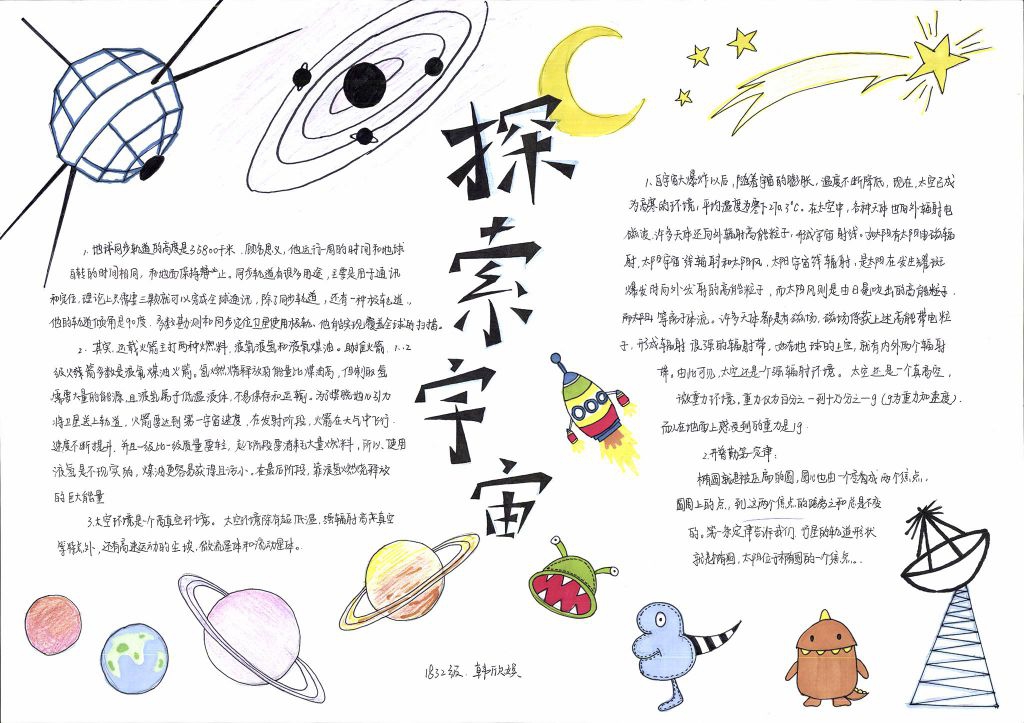 探索宇宙
1. 地球同步轨道的高度是35800千米，顾名思义，他运行一周的时间和地球
自转的时间相同，和地面保持静止。同步轨道有很多用途，主要是用于通讯
和定位，理论上只需要三颗就可以完成全球通讯，除了同步轨道，还有一种极轨道，
他的轨道倾角是90度，多数勘测和同步定位卫星使用极轨。他能实现覆盖全球的扫描。
2. 其实，运载火箭主打两种燃料，液氧液氢和液氧煤油。助推火箭，1、2
级火箭多数是液氧煤油火箭。氢燃烧释放的能量比煤油高，但制取氢
需要大量的能源，且液氢属于低温液体，不易保存和运输。为摆脱地心引力
将卫星送上轨道，火箭要达到第一宇宙速度，在发射阶段，火箭在大气中飞行
速度不断提升，并且一级比一级质量要轻，起飞阶段要消耗大量燃料，所以，使用
液氢是不现实的，煤油更容易获得且污小。在最后阶段，靠液氢燃烧释放
的巨大能量
3.太空环境是一个高真空环境。太空环境除有超低温，强辐射高真空
等特点外，还有高速运动的尘埃，微流星体和流动星体。
1.自宇宙大爆炸以后，随着宇宙的膨胀，温度不断降低，现在，太空已成
为高寒的环境，平均温度为零下270.3℃。在太空中，各种天体也向外辐射电
磁波，许多天体还向外辐射高能粒子，形成宇宙射线。如太阳有太阳电磁辐
射，太阳宇宙线辐射和太阳风，太阳宇宙线辐射，是太阳在发生耀斑
爆发时向外发射的高能粒子，而太阳风则是由日冕吹出的高能粒子
等离子体流。许多天体都具有磁场，磁场俘获上述高能带电粒
子，形成辐射很强的辐射带，如在地球的上空，就有内外两个辐射
带。由此可见，太空还是个强辐射环境。太空还是一个真高空，
微重力环境，重力仅为百分之一到十万分之一g（g为重力加速度）
而人在地面上感受到的重力是1g
2.开普勒第一定律：
椭圆就是被压扁的圆，圆心也由一个变成两个焦点，
圆周上的点，到这两个焦点的距离之和总是不变
的。第一条定律告诉我们，行星的轨道形状
就是椭圆，太阳位于椭圆的一个焦点。
1832级．韩欣娱